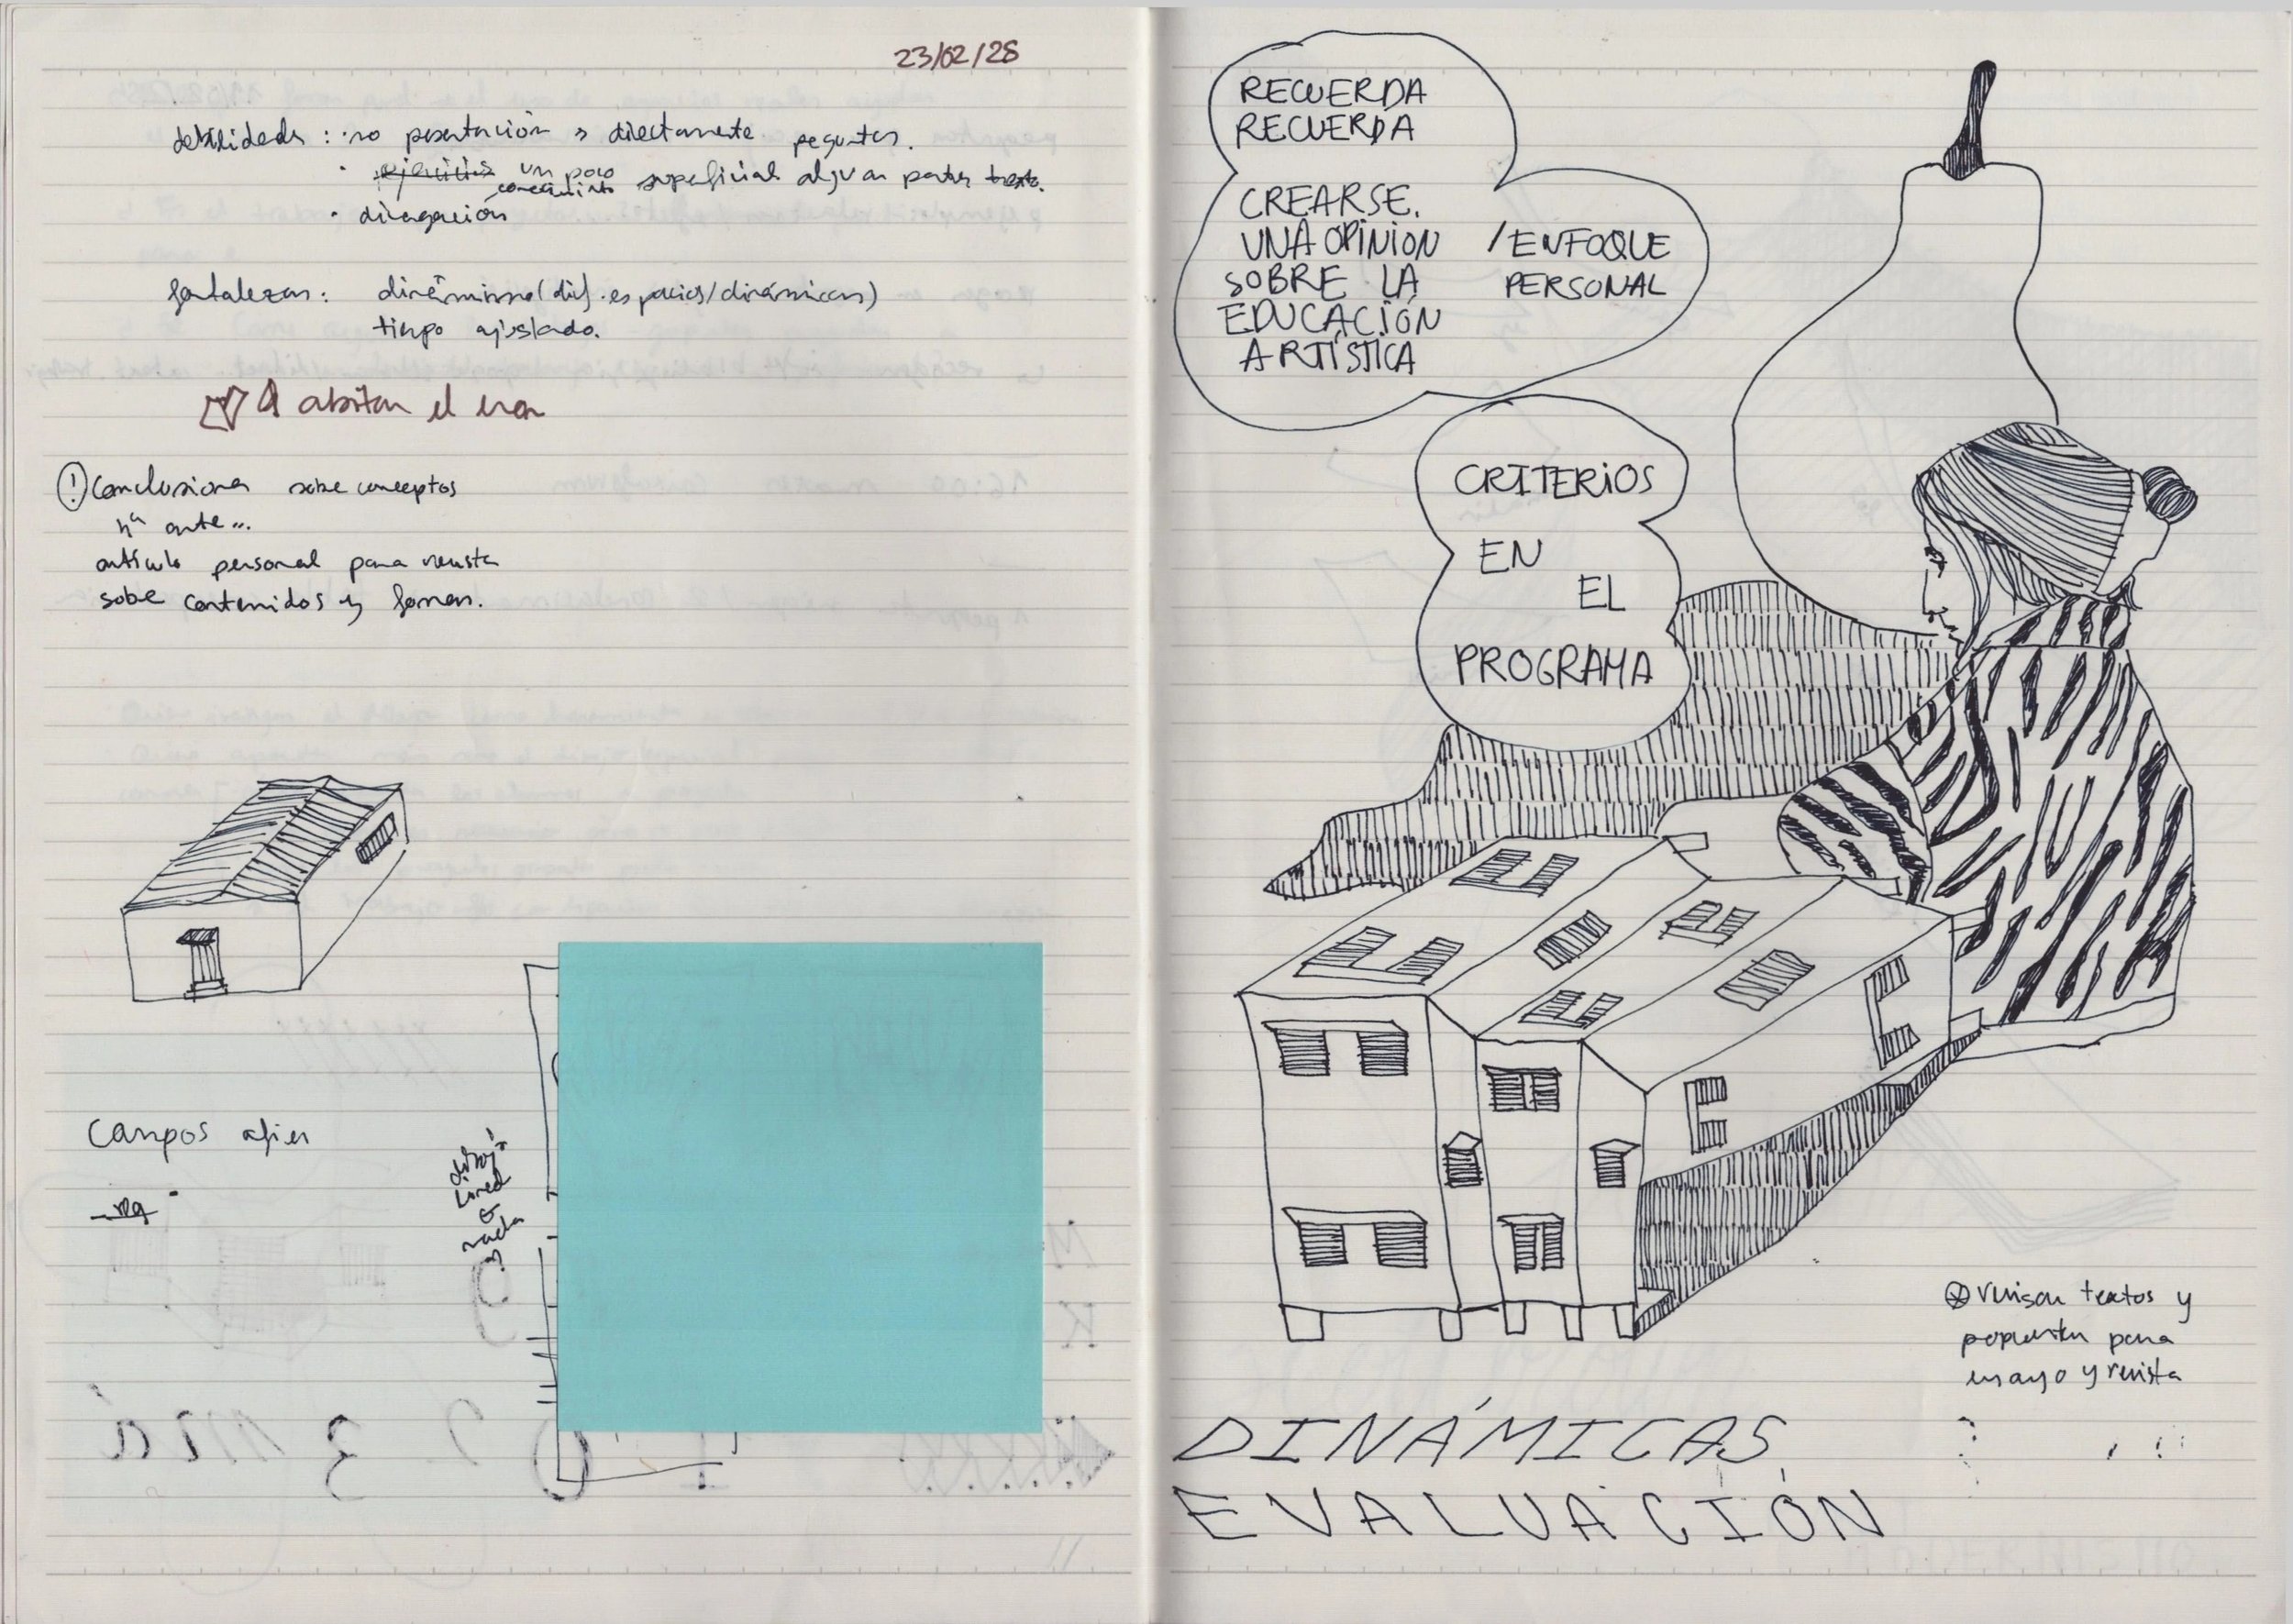 23/02/28
debilidades: · no presentación → directamente preguntas.
· un poco superficial algunas partes
conocimiento
· divagación
fortalezas: dinamismo (dif. espacios/dinámicas)
tiempo ajustado.
el
① Conclusiones sobre conceptos
hª arte...
artículo personal para revista
sobre contenidos y formas.
Campos
dibujo
RECUERDA
RECUERDA
CREARSE.
UNA OPINION / ENFOQUE
SOBRE LA PERSONAL
EDUCACIÓN
ARTÍSTICA
CRITERIOS
EN
EL
PROGRAMA
revisar textos y
propuestas para
ensayo y revista
DINÁMICAS
EVALUACIÓN